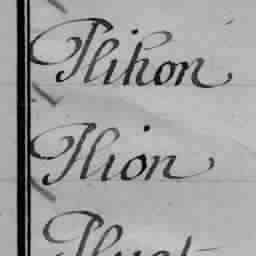 Plihon
Plion